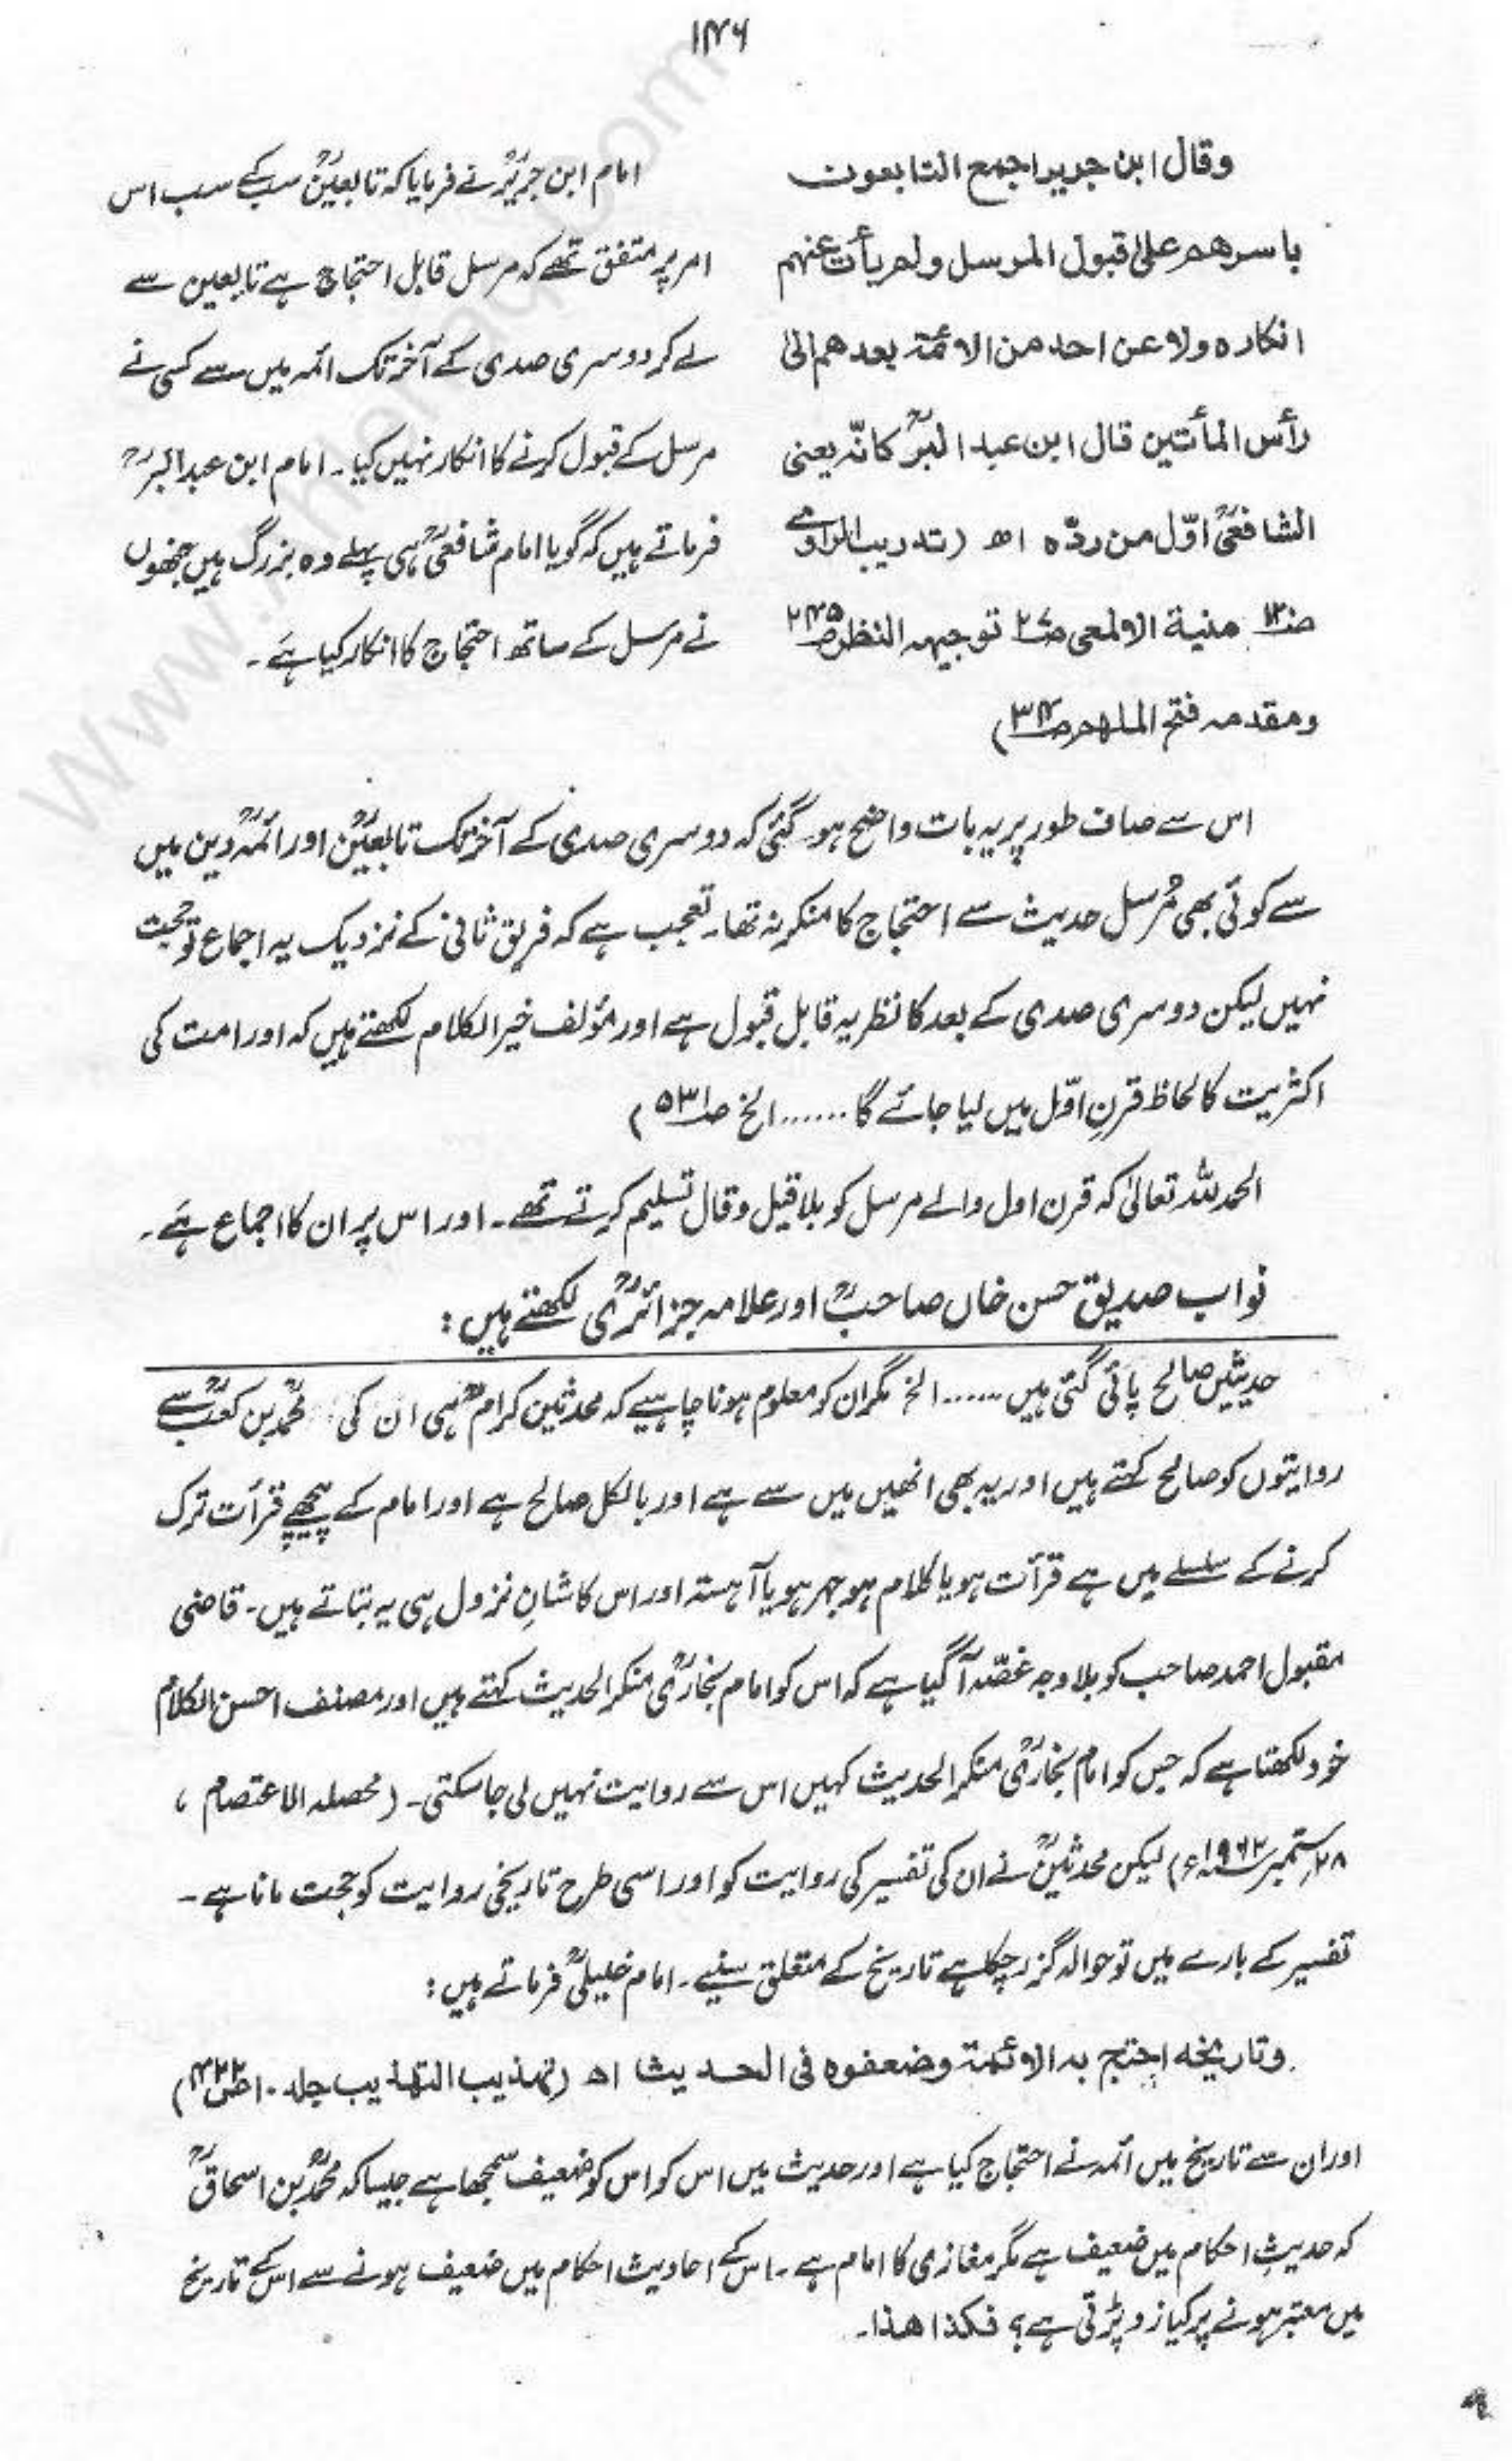 ۱۴۶
وقال ابن جریر اجمع التابعون
باسرهم علیٰ قبول المرسل ولم یأت عنهم
انکاره ولا عن احد من الائمة بعدهم الیٰ
رأس المأتین قال ابن عبد البرؒ کانّه یعنی
الشافعیؒ اوّل من ردّه اھ (تدریب الراوی
منیة الالمعی ص۲۷ توجیه النظر ص۲۴۵
ومقدمه فتح الملهم ص۳۴)
امام ابن جریرؒ نے فرمایا کہ تابعینؒ سب کے سب اس
امر پر متفق تھے کہ مرسل قابل احتجاج ہے تابعین سے
لے کر دوسری صدی کے آخر تک ائمہ میں سے کسی نے
مرسل کے قبول کرنے کا انکار نہیں کیا۔ امام ابن عبدالبرؒ
فرماتے ہیں کہ گویا امام شافعیؒ ہی پہلے وہ بزرگ ہیں جنھوں
نے مرسل کے ساتھ احتجاج کا انکار کیا ہے۔
اس سے صاف طور پر یہ بات واضح ہو گئی کہ دوسری صدی کے آخر تک تابعینؒ اور ائمہؒ دین میں
سے کوئی بھی مُرسل حدیث سے احتجاج کا منکر نہ تھا۔ تعجب ہے کہ فریق ثانی کے نزدیک یہ اجماع تو حجت
نہیں لیکن دوسری صدی کے بعد کا نظریہ قابل قبول ہے اور مؤلف خیر الکلام لکھتے ہیں کہ اور امت کی
اکثریت کا لحاظ قرنِ اوّل میں لیا جائے گا ...... الخ ص۵۳۱)
الحمد للہ تعالیٰ کہ قرن اول والے مرسل کو بلا قیل وقال تسلیم کرتے تھے۔ اور اس پر ان کا اجماع ہے۔
نواب صدیق حسن خاں صاحبؒ اور علامہ جزائریؒ لکھتے ہیں:
حدیثیں صالح پائی گئی ہیں ...... الخ مگر ان کو معلوم ہونا چاہیے کہ محدثین کرامؒ ہی ان کی محمدؒ بن کعبؒ سے
روایتوں کو صالح کہتے ہیں اور یہ بھی انھیں میں سے ہے اور بالکل صالح ہے اور امام کے پیچھے قرأت ترک
کرنے کے سلسلے میں ہے قرأت ہو یا کلام ہو جہر ہو یا آہستہ اور اس کا شانِ نزول ہی یہ بتاتے ہیں۔ قاضی
مقبول احمد صاحب کو بلا وجہ غصّہ آ گیا ہے کہ اس کو امام بخاریؒ منکر الحدیث کہتے ہیں اور مصنف احسن الکلام
خود لکھتا ہے کہ جس کو امام بخاریؒ منکر الحدیث کہیں اس سے روایت نہیں لی جا سکتی۔ (محصلہ الاعتصام ،
۲۸ ستمبر ۱۹۶۲ء) لیکن محدثینؒ نے ان کی تفسیر کی روایت کو اور اسی طرح تاریخی روایت کو حجت مانا ہے۔
تفسیر کے بارے میں تو حوالہ گزر چکا ہے تاریخ کے متعلق سنیے۔ امام خلیلیؒ فرماتے ہیں:
وتاریخه احتج به الائمة وضعفوه فی الحدیث اھ (تهذیب التهذیب جلد ۱۰ ص۴۲۲)
اور ان سے تاریخ میں ائمہ نے احتجاج کیا ہے اور حدیث میں اس کو اس کو ضعیف سمجھا ہے جیسا کہ محمدؒ بن اسحاقؒ
کہ حدیثِ احکام میں ضعیف ہے مگر مغازی کا امام ہے۔ اس کے احادیث احکام میں ضعیف ہونے سے اس کے تاریخ
میں معتبر ہونے پر کیا زد پڑتی ہے؟ فکذا هذا۔